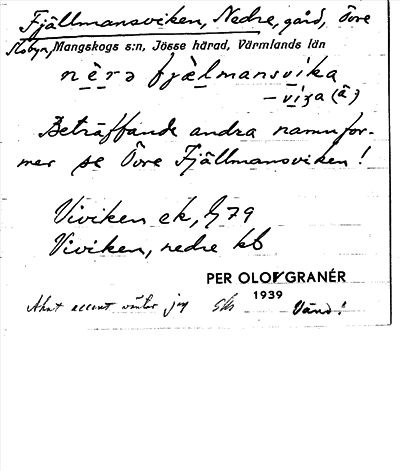 Fjällmansviken, Nedre, gård, Övre
Mangskogs s:n, Jösse härad, Värmlands län
nèrə fjælmansvika
– viga (ä)
Beträffande andra namnfor-
mer se Övre Fjällmansviken!
Viviken ek, 79
Viviken, nedre kb
PER OLOF GRANÉR
1939
Akut accent väntar jag Vänd!